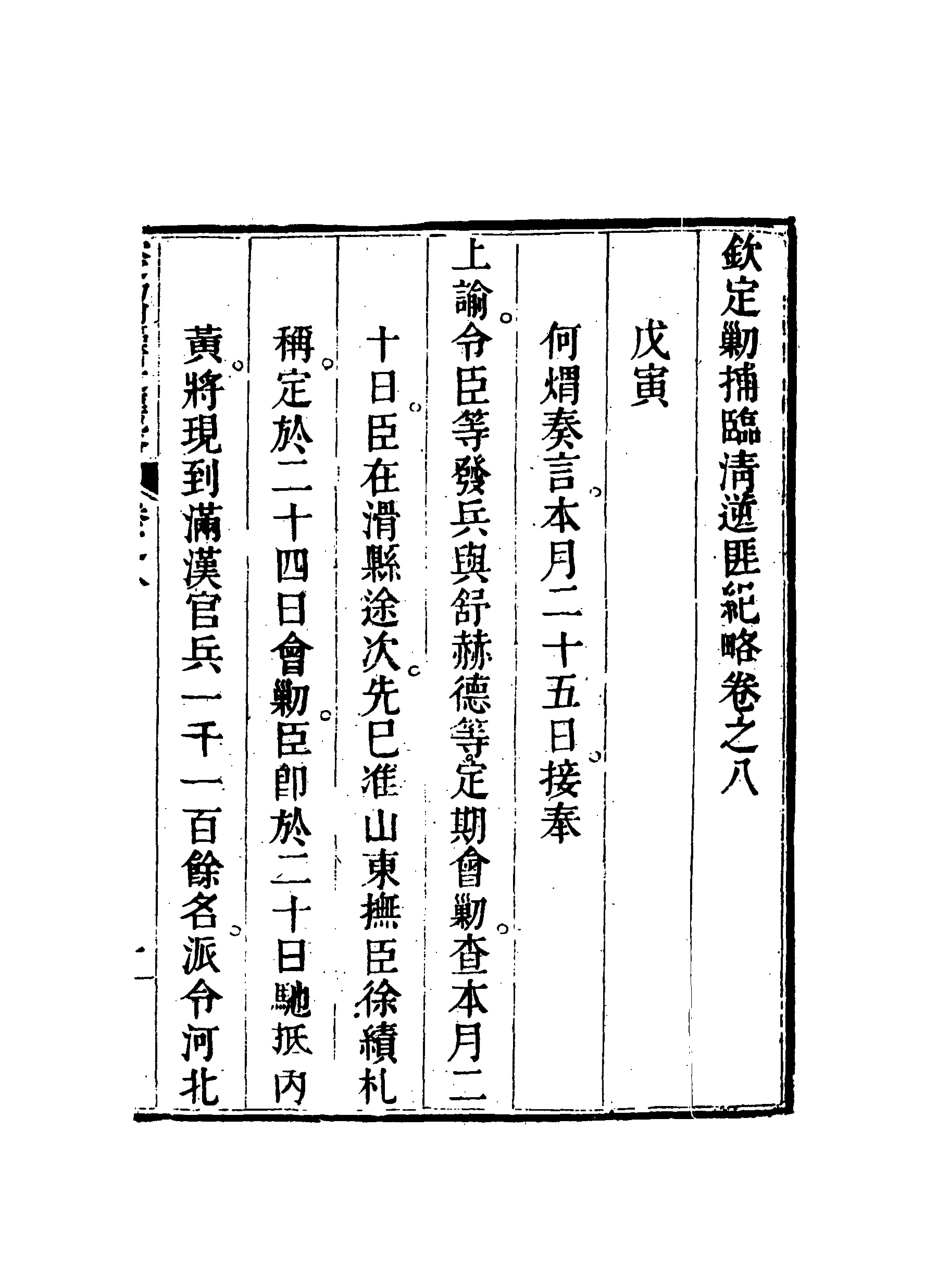 欽定勦捕臨清逆匪紀略卷之八
戊寅
何煟奏言。本月二十五日。接奉
上諭。令臣等發兵與舒赫德等。定期會勦。查本月二
十日。臣在滑縣途次。先已准山東撫臣徐績札
稱。定於二十四日會勦。臣卽於二十日馳抵內
黃。將現到滿漢官兵一千一百餘名。派令河北